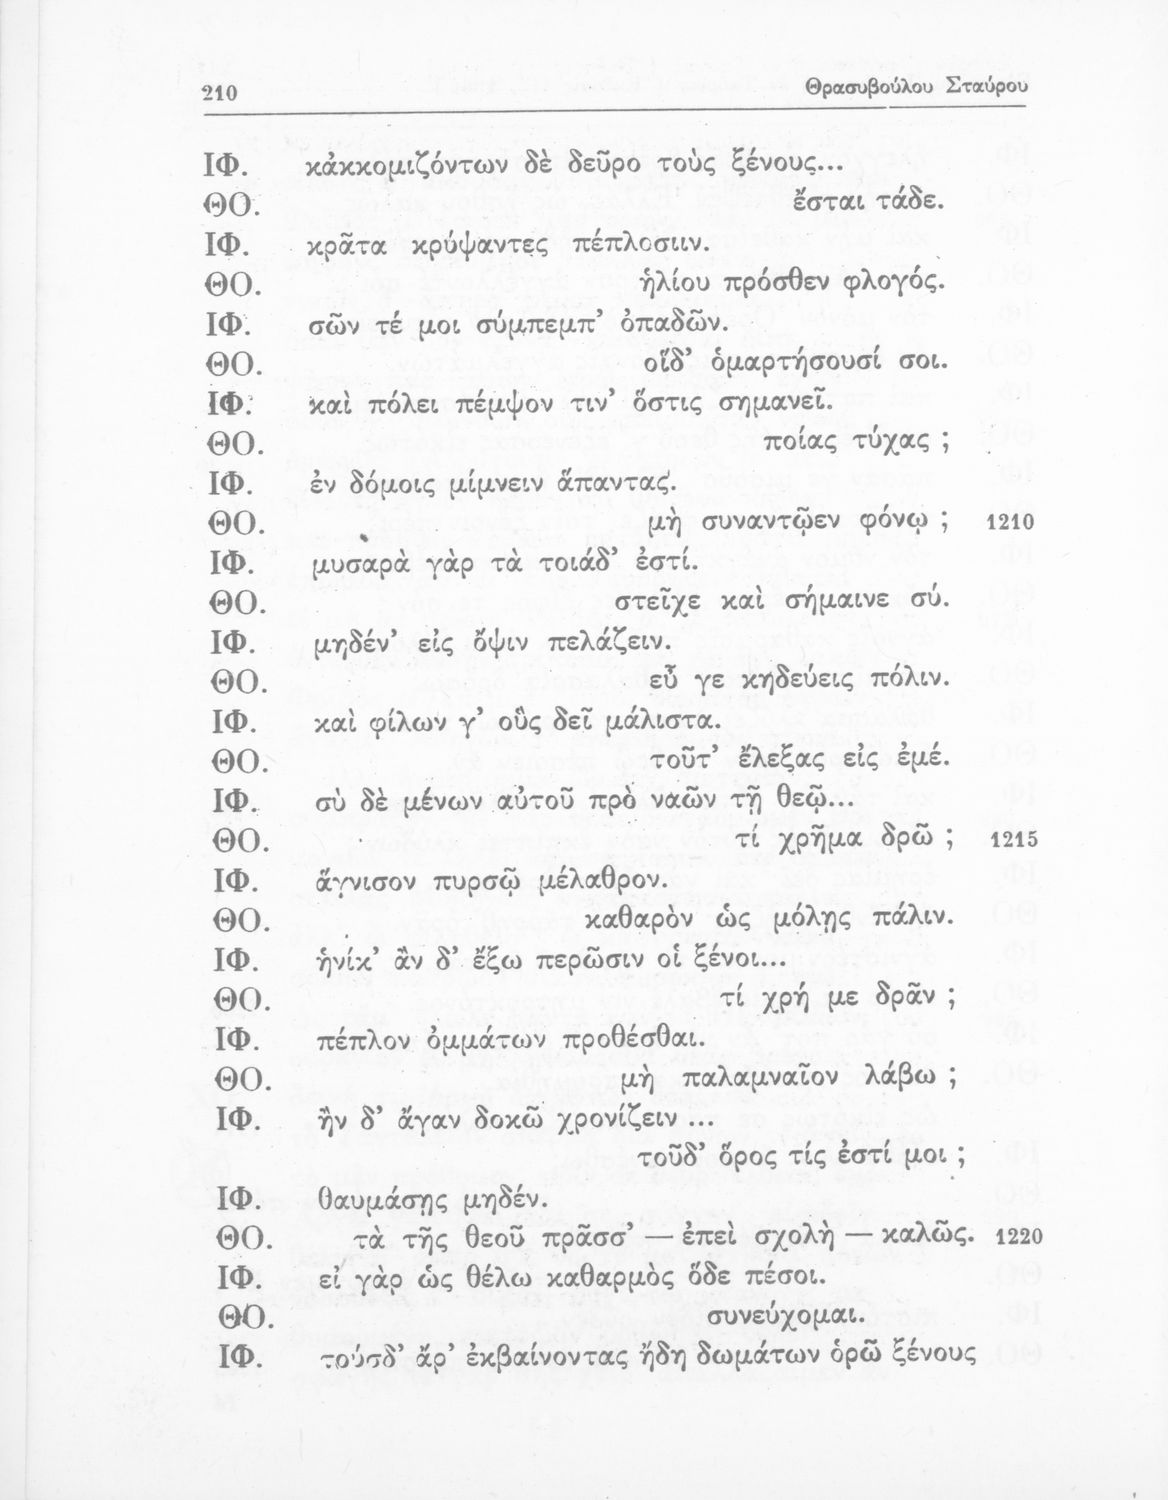 210 Θρασυβούλου Σταύρου
ΙΦ. κἀκκομιζόντων δὲ δεῦρο τοὺς ξένους...
ΘΟ. ἔσται τάδε.
ΙΦ. κρᾶτα κρύψαντες πέπλοσιιν.
ΘΟ. ἡλίου πρόσθεν φλογός.
ΙΦ. σῶν τέ μοι σύμπεμπ' ὀπαδῶν.
ΘΟ. οἵδ' ὁμαρτήσουσί σοι.
ΙΦ. καὶ πόλει πέμψον τιν' ὅστις σημανεῖ.
ΘΟ. ποίας τύχας ;
ΙΦ. ἐν δόμοις μίμνειν ἅπαντας.
ΘΟ. μὴ συναντῷεν φόνῳ ; 1210
ΙΦ. μυσαρὰ γὰρ τὰ τοιάδ' ἐστί.
ΘΟ. στεῖχε καὶ σήμαινε σύ.
ΙΦ. μηδέν' εἰς ὄψιν πελάζειν.
ΘΟ. εὖ γε κηδεύεις πόλιν.
ΙΦ. καὶ φίλων γ' οὓς δεῖ μάλιστα.
ΘΟ. τοῦτ' ἔλεξας εἰς ἐμέ.
ΙΦ. σὺ δὲ μένων αὐτοῦ πρὸ ναῶν τῇ θεῷ...
ΘΟ. τί χρῆμα δρῶ ; 1215
ΙΦ. ἅγνισον πυρσῷ μέλαθρον.
ΘΟ. καθαρὸν ὡς μόλῃς πάλιν.
ΙΦ. ἡνίκ' ἂν δ' ἔξω περῶσιν οἱ ξένοι...
ΘΟ. τί χρή με δρᾶν ;
ΙΦ. πέπλον ὀμμάτων προθέσθαι.
ΘΟ. μὴ παλαμναῖον λάβω ;
ΙΦ. ἢν δ' ἄγαν δοκῶ χρονίζειν ...
τοῦδ' ὅρος τίς ἐστί μοι ;
ΙΦ. θαυμάσῃς μηδέν.
ΘΟ. τὰ τῆς θεοῦ πρᾶσσ' — ἐπεὶ σχολὴ — καλῶς. 1220
ΙΦ. εἰ γὰρ ὡς θέλω καθαρμὸς ὅδε πέσοι.
ΘΟ. συνεύχομαι.
ΙΦ. τούσδ' ἄρ' ἐκβαίνοντας ἤδη δωμάτων ὁρῶ ξένους